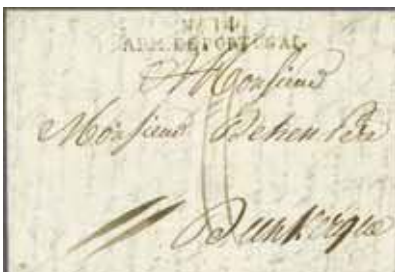 No 14
ARM. DE PORTUGAL
A Monsieur
Monsieur
Dunkerque